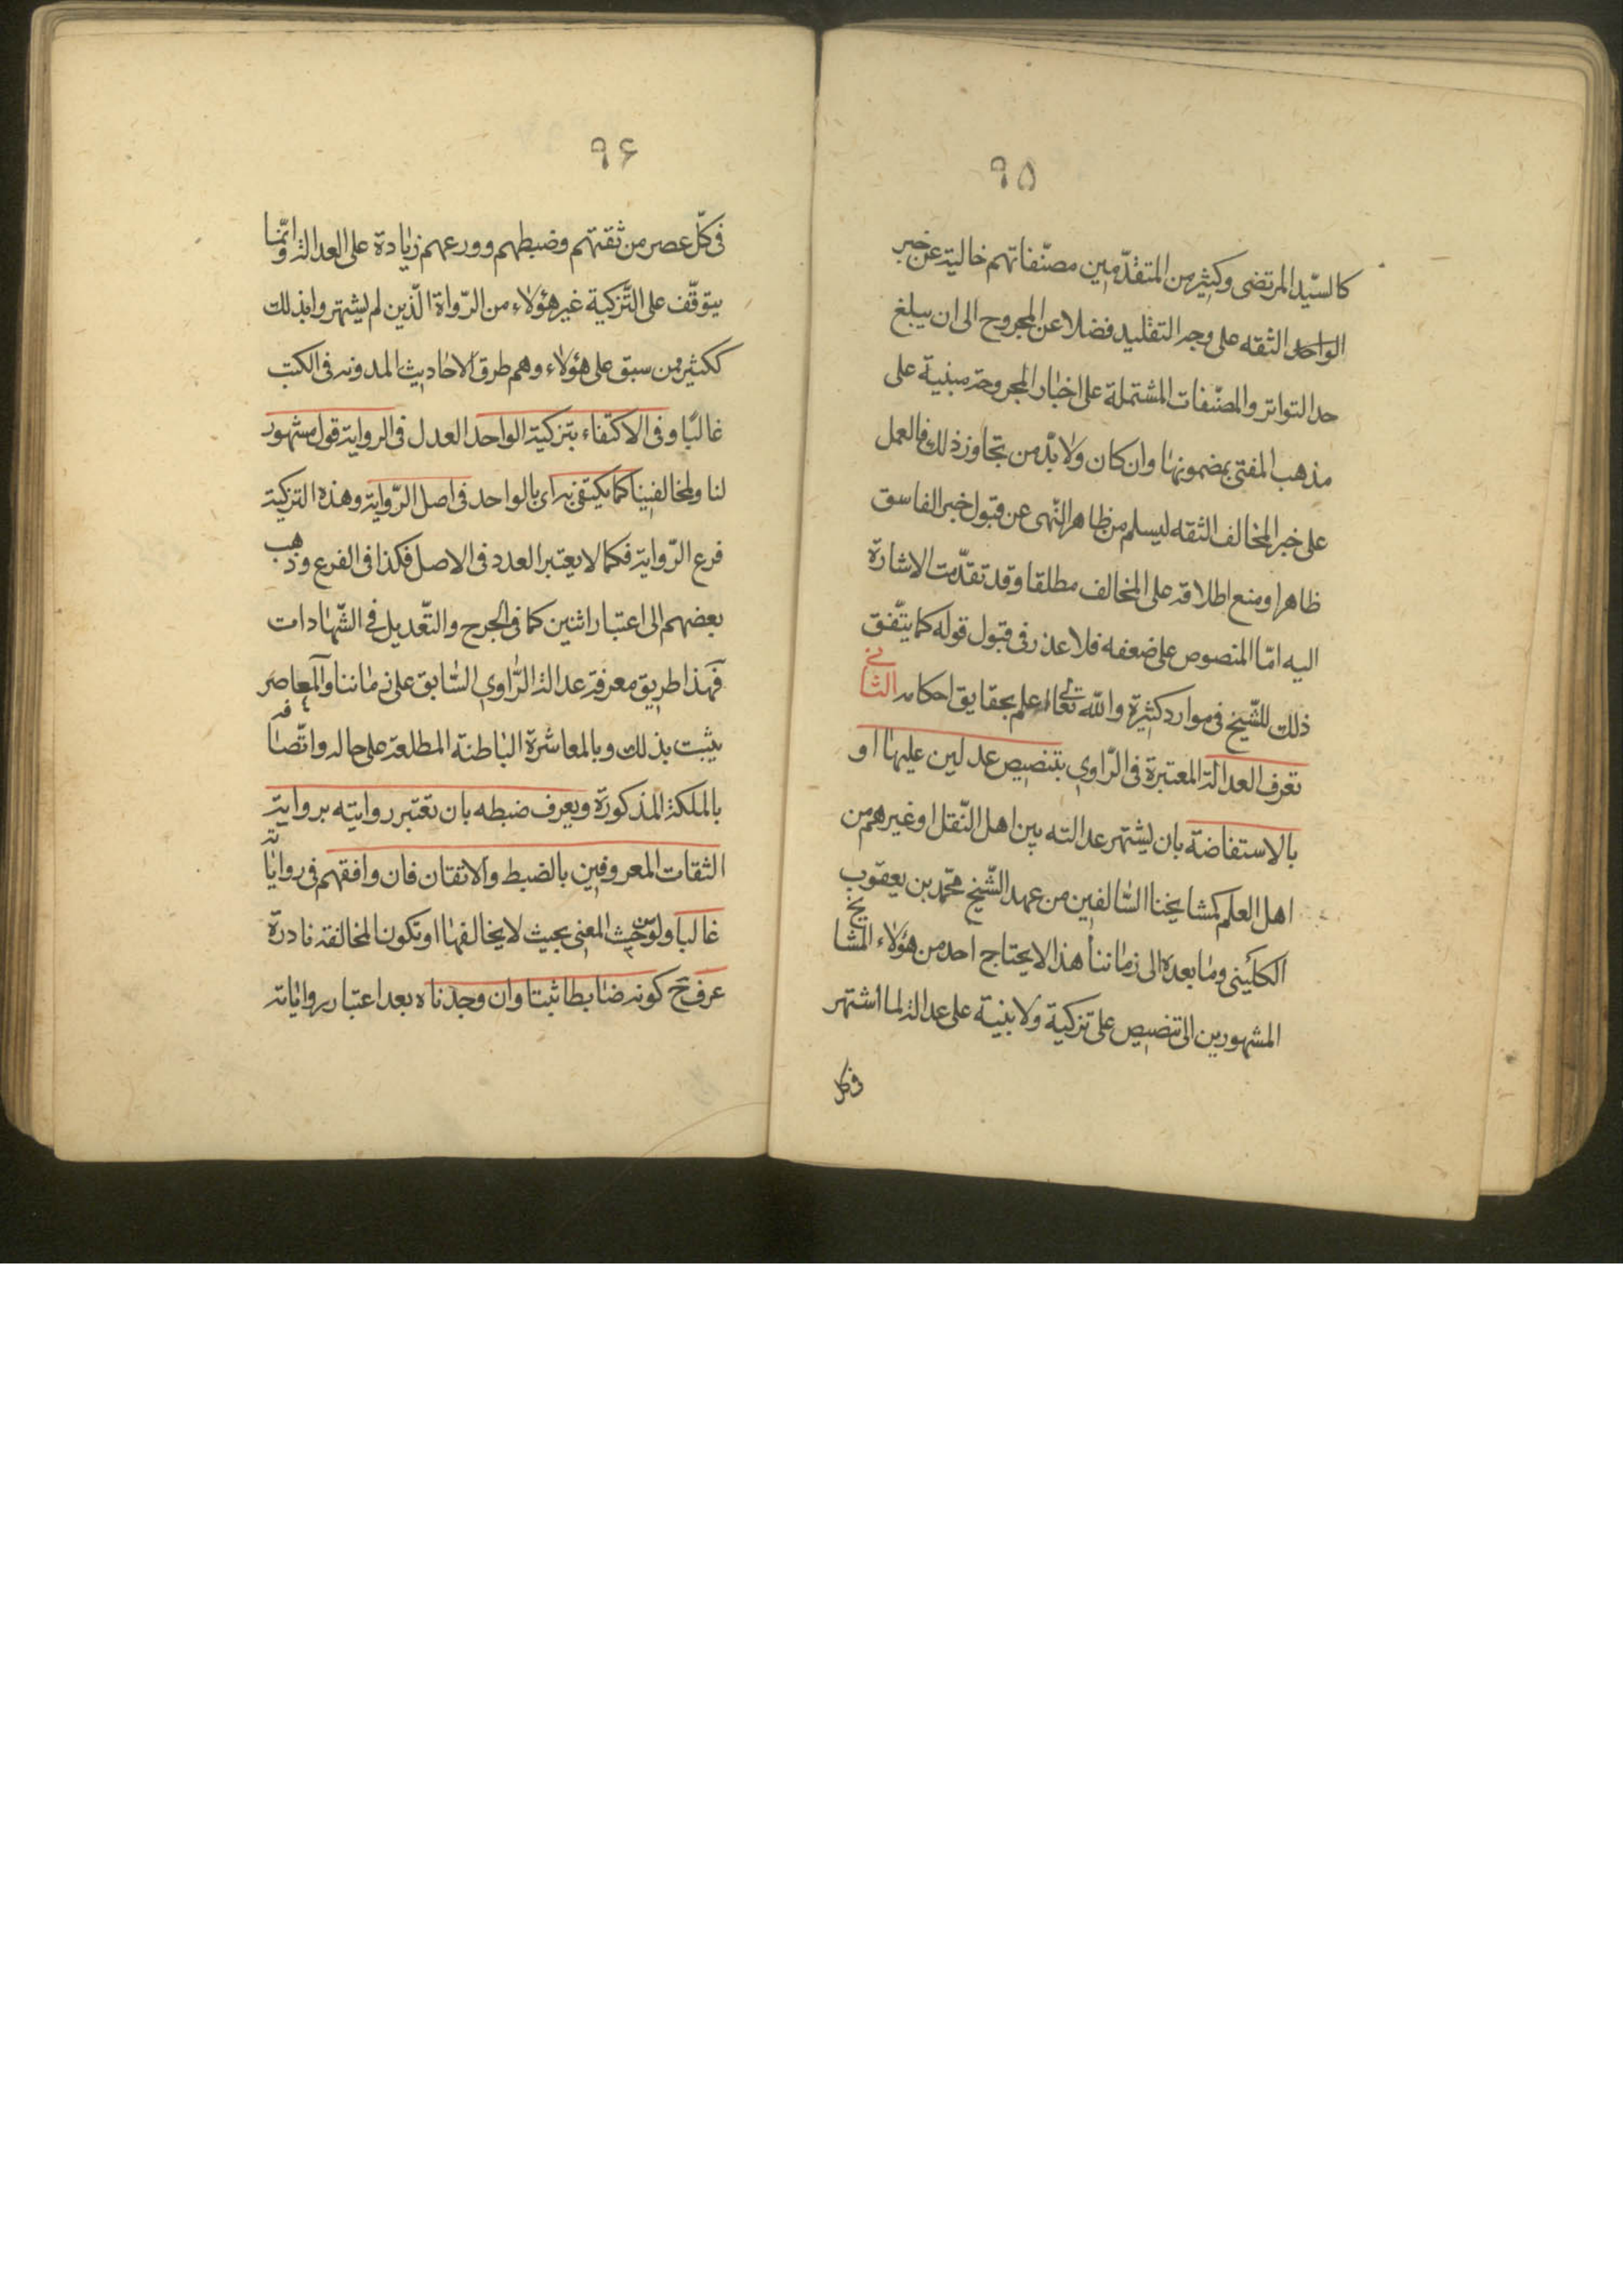 ٩٥
كالسّيّد المرتضى وكثير من المتقدّمين مصنّفاتهم خالية عن خبر
الواحد الثقه على وجه التقليد فضلا عن المجروح الى ان يبلغ
حد التواتر والمصنّفات المشتملة على اخبار المجروحة مبنية على
مذهب المفتى بمضمونها وان كان ولا بدّ من تجاوز ذلك فالعمل
على خبر المخالف الثقه ليسلم من ظاهر النّهى عن قبول خبر الفاسق
ظاهرا ومنع اطلاقه على المخالف مطلقا وقد تقدّمت الاشارة
اليه امّا المنصوص على ضعفه فلا عذر فى قبول قوله كما يتّفق
ذلك للشّيخ فى موارد كثيرة والله تعالى اعلم بحقايق احكامه الثانى
تعرف العدالة المعتبرة فى الرّاوي بتنصيص عدلين عليها او
بالاستفاضة بان يشتهر عدالته بين اهل النّقل او غيرهم من
اهل العلم كمشايخنا السّالفين من عهد الشّيخ محمّد بن يعقوب
الكلينى وما بعده الى زماننا هذا لا يحتاج احد من هؤلاء المشايخ
المشهورين الى تنصيص على تزكية ولا بنية على عدالة لما اشتهر
فى كل
٩۶
فى كلّ عصر من ثقتهم وضبطهم وورعهم زيادة على العدالة وانّما
يتوقّف على التّزكية غير هؤلاء من الرّواة الّذين لم يشتهروا بذلك
ككثير ممن سبق على هؤلاء وهم طرق الاحاديث المدونه فى الكتب
غالبًا وفى الاكتفاء بتزكية الواحد العدل فى الرواية قول مشهور
لنا ولمخالفينا كما يكتفى به اى بالواحد فى اصل الرّواية وهذه التزكية
فرع الرّواية فكما لا يعتبر العدد فى الاصل فكذا فى الفرع وذهب
بعضهم الى اعتبار اثنين كما فى الجرح والتّعديل فى الشّهادات
فهذا طريق معرفة عدالة الرّاوي السّابق على زماننا والمعاصر
يثبت بذلك وبالمعاشرة الباطنة المطلعة على حاله واتّصافه
بالملكة المذكورة ويعرف ضبطه بان تعتبر روايته برواية
الثقات المعروفين بالضبط والاتقان فان وافقهم فى رواياته
غالبا ولو من حيث المعنى بحيث لا يخالفها او تكون المخالفة نادرة
عرف ح كونه ضابطا ثبتا وان وجدناه بعد اعتبار رواياته